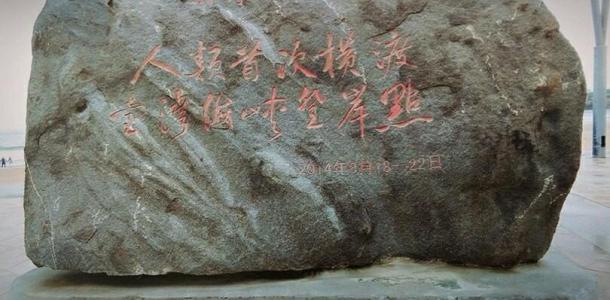 人類首次橫渡
臺灣海峽登岸點
2014年9月18—22日